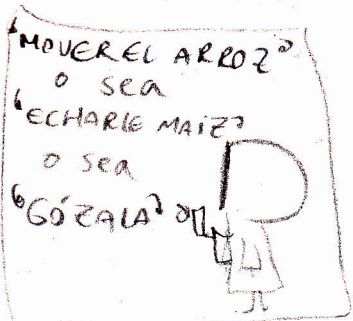 "MOVER EL ARROZ"
o sea
"ECHARLE MAÍZ"
o sea
"GÓZALA"